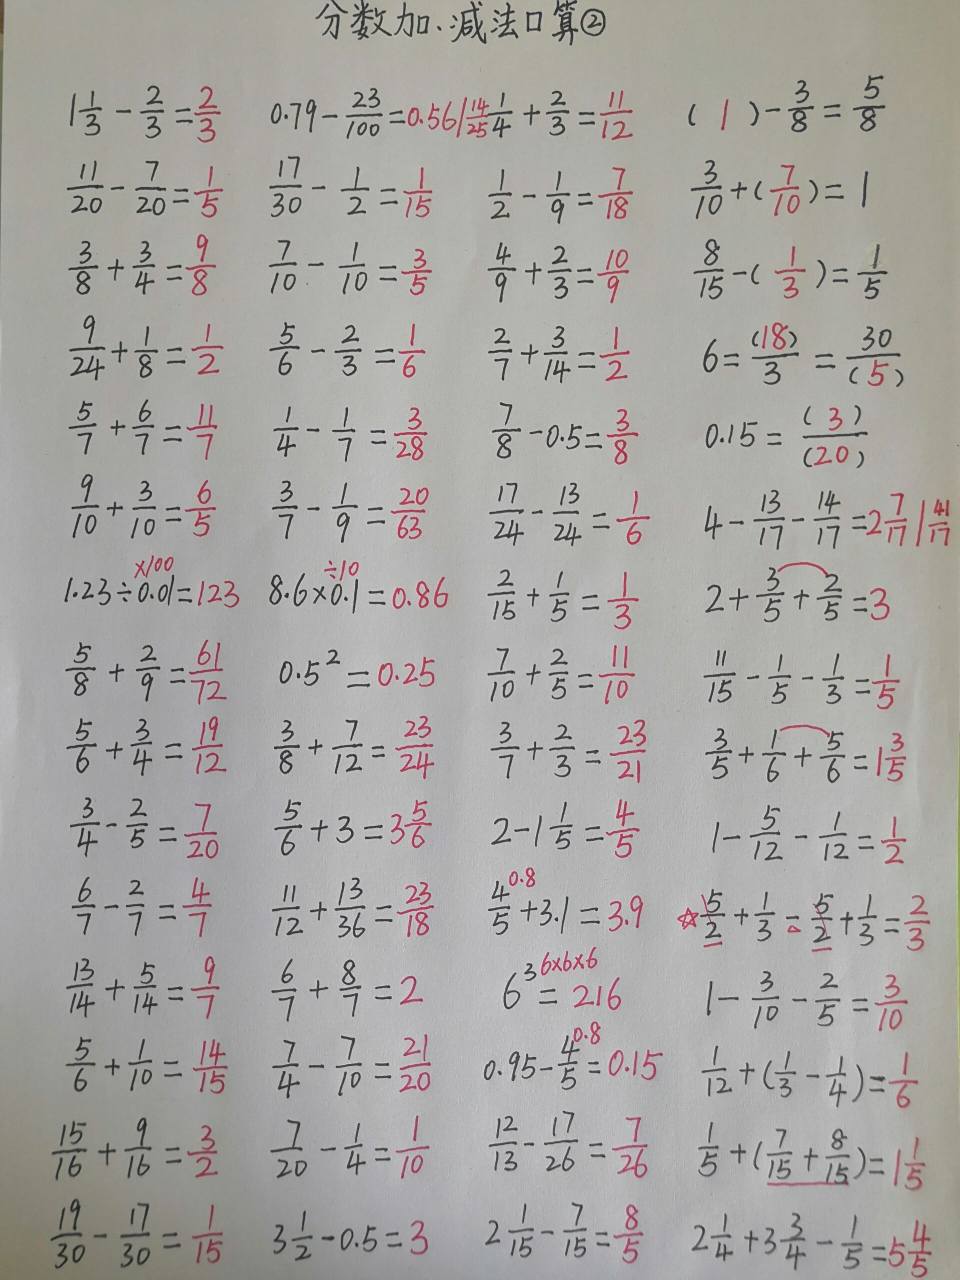 分数加、减法口算②
1 1/3 - 2/3 = 2/3    0.79 - 23/100 = 0.56 | 14/25    1/4 + 2/3 = 11/12    ( 1 ) - 3/8 = 5/8
11/20 - 7/20 = 1/5    17/30 - 1/2 = 1/15    1/2 - 1/9 = 7/18    3/10 + ( 7/10 ) = 1
3/8 + 3/4 = 9/8    7/10 - 1/10 = 3/5    4/9 + 2/3 = 10/9    8/15 - ( 1/3 ) = 1/5
9/24 + 1/8 = 1/2    5/6 - 2/3 = 1/6    2/7 + 3/14 = 1/2    6 = (18)/3 = 30/(5)
5/7 + 6/7 = 11/7    1/4 - 1/7 = 3/28    7/8 - 0.5 = 3/8    0.15 = (3)/(20)
9/10 + 3/10 = 6/5    3/7 - 1/9 = 20/63    17/24 - 13/24 = 1/6    4 - 13/17 - 14/17 = 2 7/17 | 41/17
×100    ÷10
1.23 ÷ 0.01 = 123    8.6 × 0.1 = 0.86    2/15 + 1/5 = 1/3    2 + 3/5 + 2/5 = 3
5/8 + 2/9 = 61/72    0.5² = 0.25    7/10 + 2/5 = 11/10    11/15 - 1/5 - 1/3 = 1/5
5/6 + 3/4 = 19/12    3/8 + 7/12 = 23/24    3/7 + 2/3 = 23/21    3/5 + 1/6 + 5/6 = 1 3/5
3/4 - 2/5 = 7/20    5/6 + 3 = 3 5/6    2 - 1 1/5 = 4/5    1 - 5/12 - 1/12 = 1/2
0.8
6/7 - 2/7 = 4/7    11/12 + 13/36 = 23/18    4/5 + 3.1 = 3.9    ☆ 5/2 + 1/3 - 5/2 + 1/3 = 2/3
6×6×6
13/14 + 5/14 = 9/7    6/7 + 8/7 = 2    6³ = 216    1 - 3/10 - 2/5 = 3/10
0.8
5/6 + 1/10 = 14/15    7/4 - 7/10 = 21/20    0.95 - 4/5 = 0.15    1/12 + (1/3 - 1/4) = 1/6
15/16 + 9/16 = 3/2    7/20 - 1/4 = 1/10    12/13 - 17/26 = 7/26    1/5 + (7/15 + 8/15) = 1 1/5
19/30 - 17/30 = 1/15    3 1/2 - 0.5 = 3    2 1/15 - 7/15 = 8/5    2 1/4 + 3 3/4 - 1/5 = 5 4/5